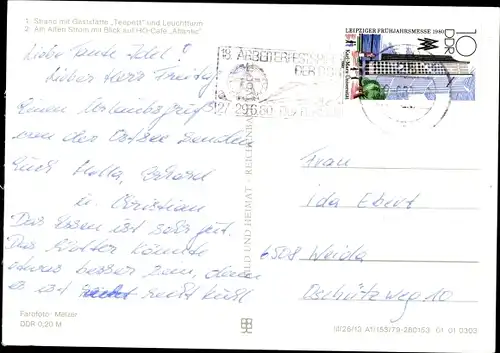 1. Strand mit Gaststätte „Teepott" und Leuchtturm
2. Am Alten Strom mit Blick auf HO-Café „Atlantic"
Liebe Tante Idel!
Lieber Herr Freitag
Einen Urlaubsgruß
von der Ostsee senden
Euch Hella, Erhard
u. Christian
Das Essen ist sehr gut.
Das Wetter könnte
etwas besser sein, denn
es ist recht kühl
Farbfoto: Melzer
DDR 0,20 M
BILD UND HEIMAT · REICHENBACH
18. ARBEITERFESTSPIELE
DER DDR
27.-29.6.80
LEIPZIGER FRÜHJAHRSMESSE 1980
DDR
10
Frau
Ida Ebert
6508 Weida
Dschützweg 10
III/26/13 A1/153/79-280153 01 01 0303